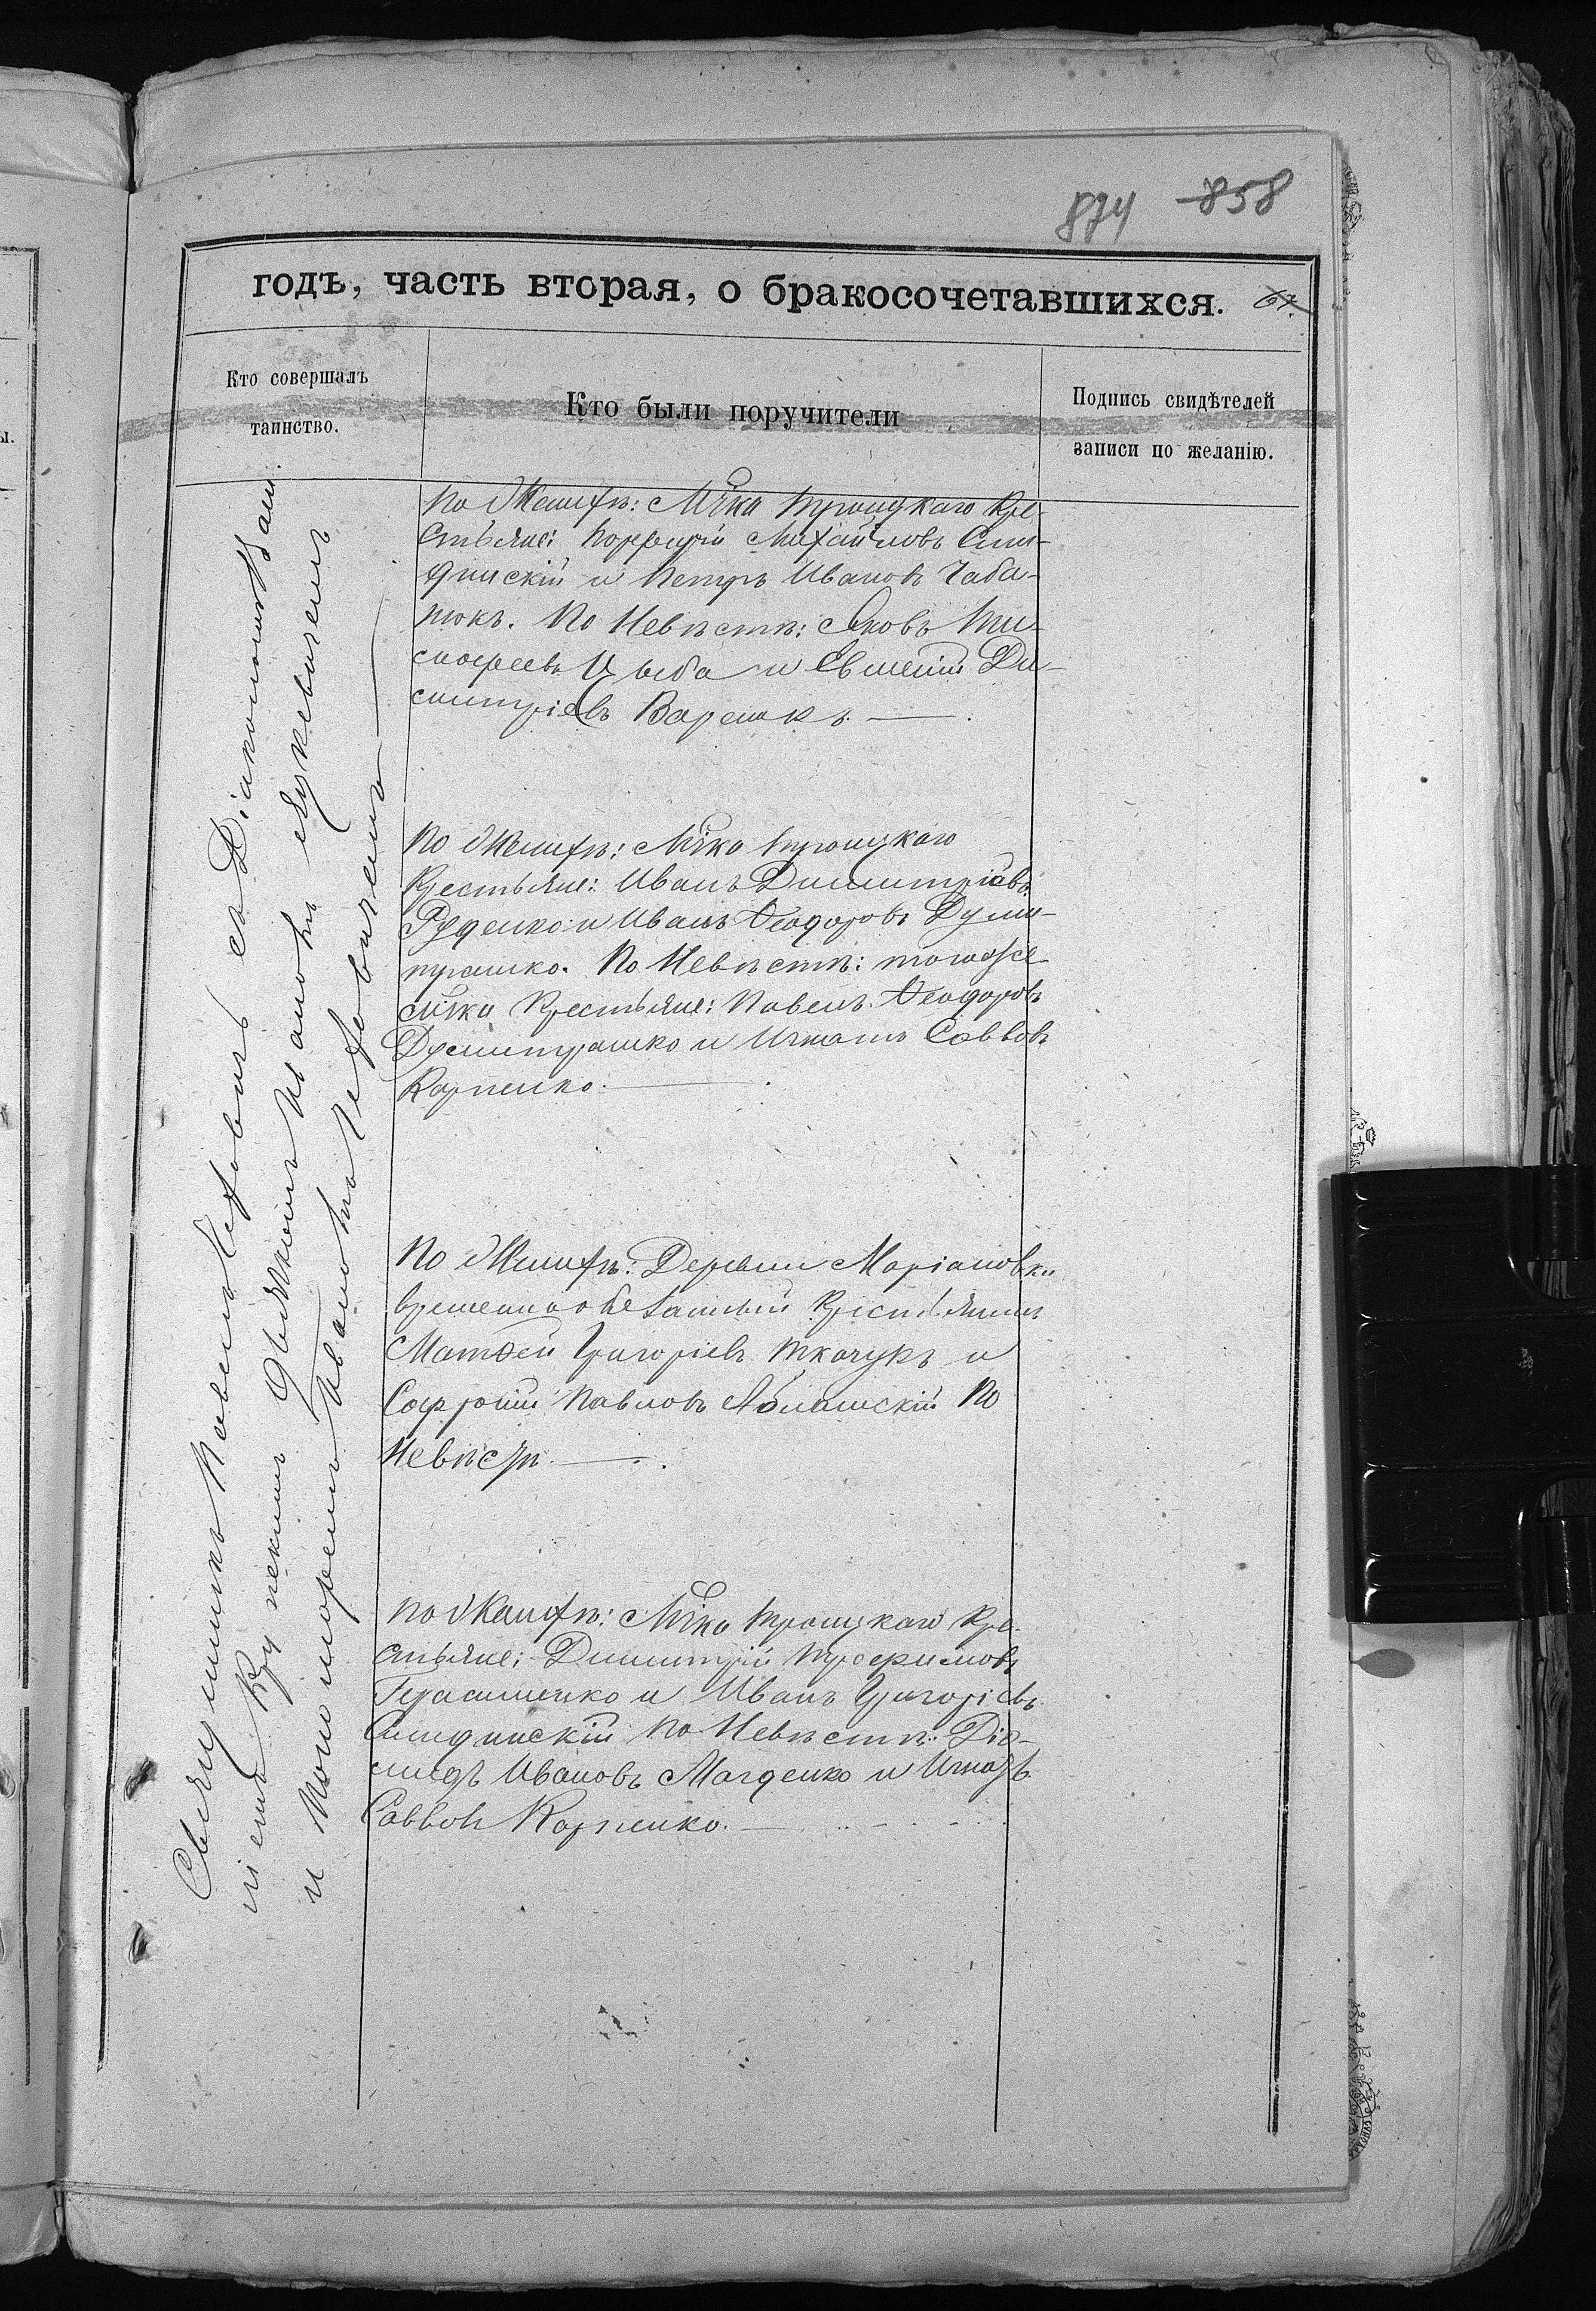 874 858
годъ, часть вторая, о бракосочетавшихся. 67.
Кто совершалъ
таинство.
Кто были поручители
Подпись свидѣтелей
записи по желанію.
Священникъ Павелъ съ Діакономъ
дьячкомъ Иваномъ
и Пономаремъ Иваномъ
По Женихѣ: Мѣчка Троицкаго Кре-
стьяне: Порфирій Михайловъ Сми-
динскій и Петръ Ивановъ Чаба-
нюкъ. По Невѣстѣ: Яковъ Ти-
мофеевъ Цыба и Евменій Ди-
митріевъ
По Женихѣ: Мѣчка Троицкаго
Крестьяне: Иванъ Димитріевъ
Руденко и Иванъ Ѳеодоровъ Думи-
трашко. По Невѣстѣ: того же
Мѣчка Крестьяне: Павелъ Ѳеодоровъ
Думитрашко и Игнатъ Саввовъ
Карпенко.
По Женихѣ: Деревни Маріановки
временнообязанный Крестьянинъ
Матѳей Григоріевъ Ткачукъ и
Софроній Павловъ По
Невѣстѣ.
По Женихѣ: Мѣчка Троицкаго Кре-
стьяне: Димитрій Трофимовъ
Герасименко и Иванъ Григоріевъ
Смидинскій По Невѣстѣ: Діо-
мидъ Ивановъ Магденко и Игнатъ
Саввовъ Карпенко.